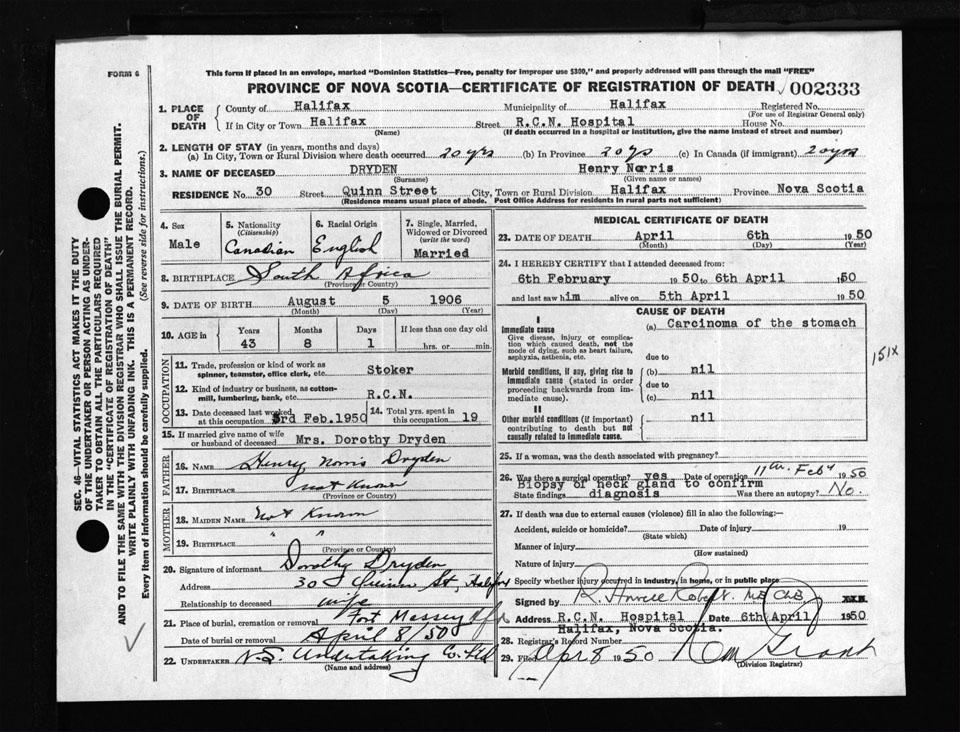 FORM 6
This form if placed in an envelope, marked "Dominion Statistics—Free, penalty for improper use $300," and properly addressed will pass through the mail "FREE"
PROVINCE OF NOVA SCOTIA—CERTIFICATE OF REGISTRATION OF DEATH 002333
1. PLACE OF DEATH
County of Halifax Municipality of Halifax Registered No.
(For use of Registrar General only)
If in City or Town Halifax Street R.C.N. Hospital House No.
(Name) (If death occurred in a hospital or institution, give the name instead of street and number)
2. LENGTH OF STAY (in years, months and days)
(a) In City, Town or Rural Division where death occurred 20 yrs (b) In Province 20 yrs (c) In Canada (if immigrant) 20 yrs
3. NAME OF DECEASED DRYDEN Henry Norris
(Surname) (Given name or names)
RESIDENCE No. 30 Street Quinn Street City, Town or Rural Division Halifax Province Nova Scotia
(Residence means usual place of abode. Post Office Address for residents in rural parts not sufficient)
4. Sex
Male
5. Nationality (Citizenship)
Canadian
6. Racial Origin
English
7. Single, Married, Widowed or Divorced (write the word)
Married
8. BIRTHPLACE South Africa
(Province or Country)
9. DATE OF BIRTH August 5 1906
(Month) (Day) (Year)
10. AGE in Years Months Days If less than one day old
43 8 1 hrs. or min.
OCCUPATION
11. Trade, profession or kind of work as spinner, teamster, office clerk, etc. Stoker
12. Kind of industry or business, as cotton-mill, lumbering, bank, etc. R.C.N.
13. Date deceased last worked at this occupation 3rd Feb. 1950
14. Total yrs. spent in this occupation 19
15. If married give name of wife or husband of deceased Mrs. Dorothy Dryden
FATHER
16. NAME Henry Norris Dryden
17. BIRTHPLACE not Known
(Province or Country)
MOTHER
18. MAIDEN NAME Not Known
19. BIRTHPLACE " "
(Province or Country)
20. Signature of informant Dorothy Dryden
Address 30 Quinn St, Halifax
Relationship to deceased wife
21. Place of burial, cremation or removal Fort Massey Hfx
Date of burial or removal April 8/50
22. UNDERTAKER N.S. Undertaking Co. Ltd
(Name and address)
MEDICAL CERTIFICATE OF DEATH
23. DATE OF DEATH April 6th 1950
(Month) (Day) (Year)
24. I HEREBY CERTIFY that I attended deceased from:
6th February 1950 to 6th April 1950
and last saw him alive on 5th April 1950
CAUSE OF DEATH
I
Immediate cause (a) Carcinoma of the stomach
Give disease, injury or complication which caused death, not the mode of dying, such as heart failure, asphyxia, asthenia, etc.
due to
151X
Morbid conditions, if any, giving rise to immediate cause (stated in order proceeding backwards from immediate cause).
(b) nil
due to
(c) nil
II
Other morbid conditions (if important) contributing to death but not causally related to immediate cause. nil
25. If a woman, was the death associated with pregnancy?
26. Was there a surgical operation? yes Date of operation 11th Feby 1950
Biopsy of neck gland to confirm
State findings diagnosis Was there an autopsy? No.
27. If death was due to external causes (violence) fill in also the following:—
Accident, suicide or homicide? Date of injury 19
(State which)
Manner of injury
(How sustained)
Nature of injury
Specify whether injury occurred in industry, in home, or in public place
Signed by R. Howell
Address R.C.N. Hospital Date 6th April 1950
Halifax, Nova Scotia.
28. Registrar's Record Number
29. Filed Apr 8 1950
(Division Registrar)
SEC. 46—VITAL STATISTICS ACT MAKES IT THE DUTY
OF THE UNDERTAKER OR PERSON ACTING AS UNDER-
TAKER TO OBTAIN ALL THE PARTICULARS REQUIRED
IN THE "CERTIFICATE OF REGISTRATION OF DEATH"
AND TO FILE THE SAME WITH THE DIVISION REGISTRAR WHO SHALL ISSUE THE BURIAL PERMIT.
WRITE PLAINLY WITH UNFADING INK. THIS IS A PERMANENT RECORD.
Every item of information should be carefully supplied. (See reverse side for instructions.)